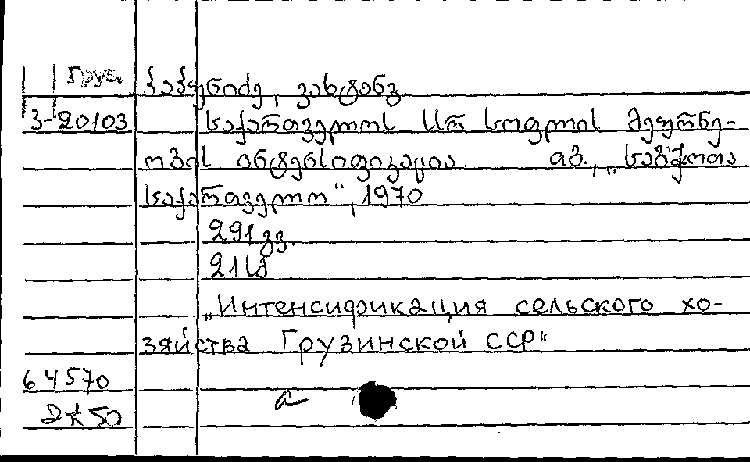 Груз.
კაპუნიძე, ვახტანგ
3-20103
საქართველოს სსრ სოფლის მეურნე-
ობის ინტენსიფიკაცია თბ., „საბჭოთა
საქართველო“, 1970
291 გვ.
21 სმ
„Интенсификация сельского хо-
зяйства Грузинской ССР“
64570
2к50
a